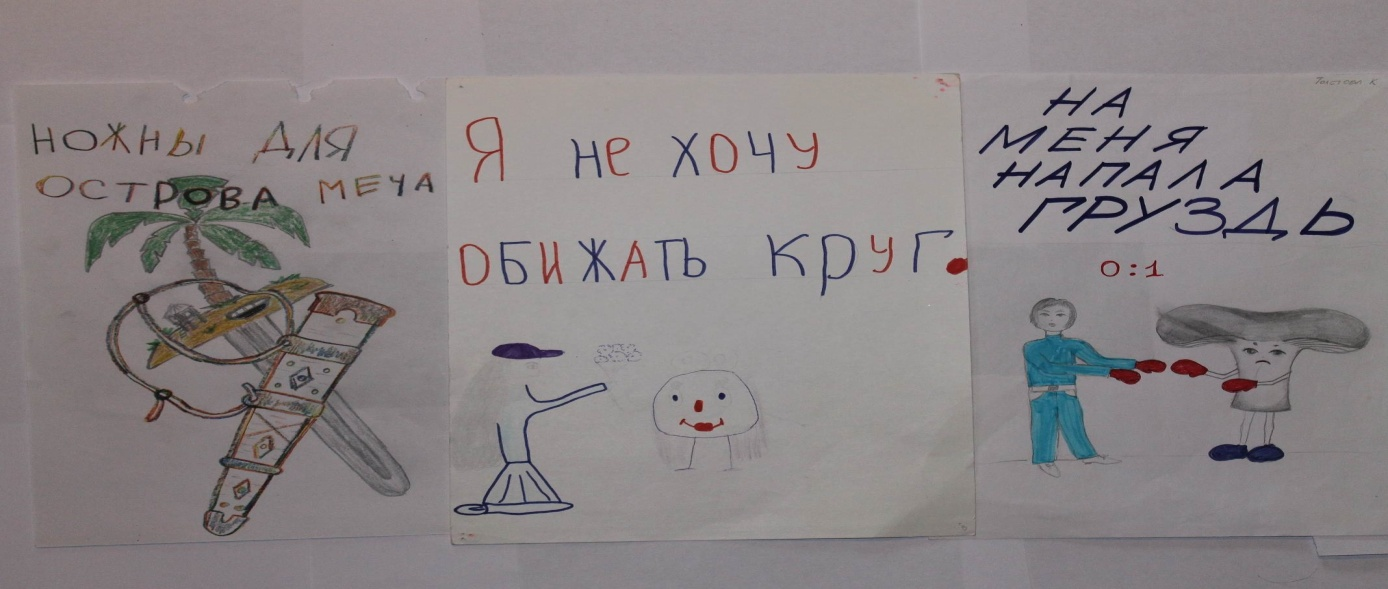 НОЖНЫ ДЛЯ
ОСТРОВА МЕЧА
Я не хочу
ОБИЖАТЬ КРУГ.
НА
МЕНЯ
НАПАЛА
ГРУЗДЬ
0:1